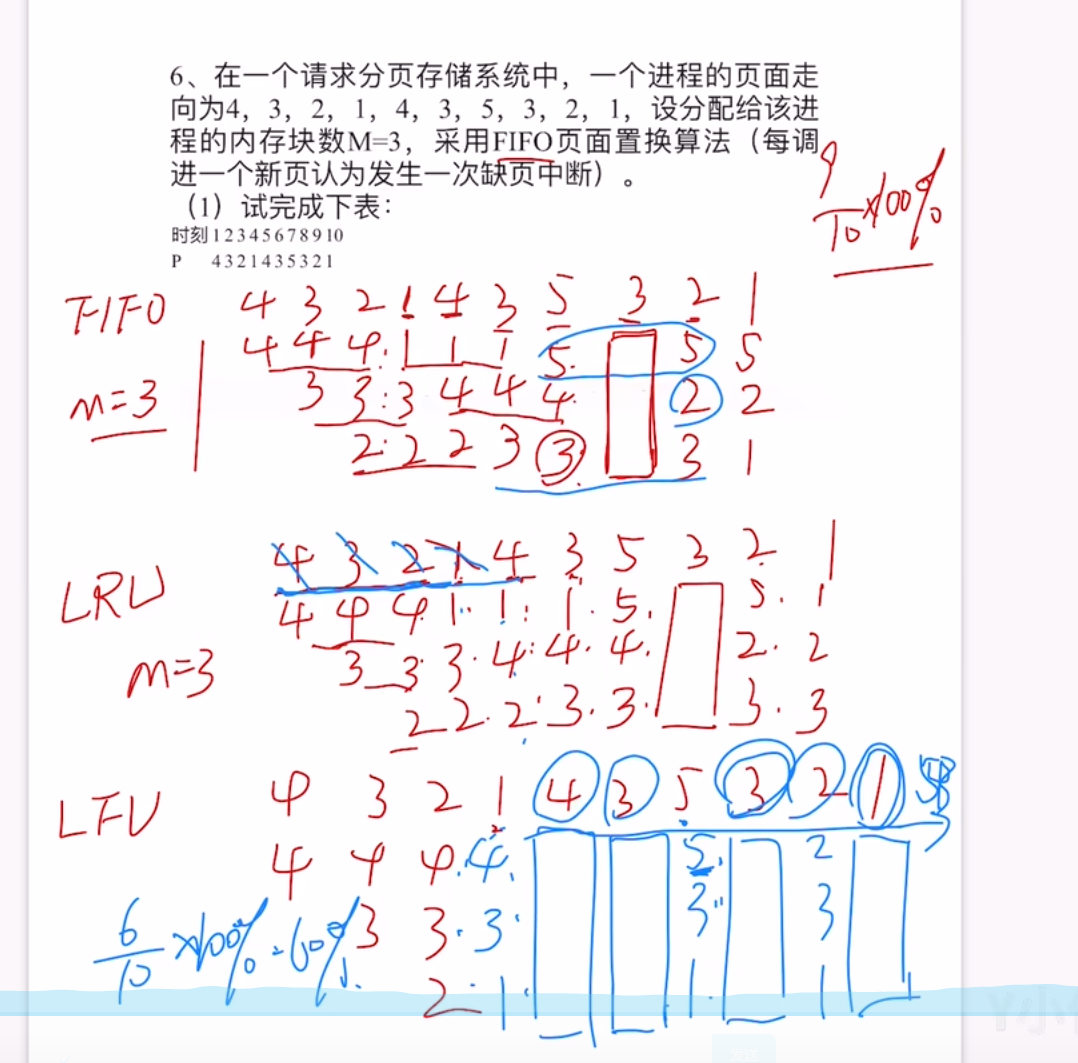 6、在一个请求分页存储系统中，一个进程的页面走
向为4，3，2，1，4，3，5，3，2，1，设分配给该进
程的内存块数M=3，采用FIFO页面置换算法（每调
进一个新页认为发生一次缺页中断）。
（1）试完成下表：
时刻 1 2 3 4 5 6 7 8 9 10
P 4 3 2 1 4 3 5 3 2 1
9/10 ×100%
FIFO 4 3 2 1 4 3 5 3 2 1
4 4 4 1 1 1 5 5 5
m=3 3 3 3 4 4 4 2 2
2 2 2 3 3 3 1
LRU 4 3 2 1 4 3 5 3 2 1
4 4 4 1 1 1 5 5 1
m=3 3 3 3 4 4 4 2 2
2 2 2 3 3 3 3
LFU 4 3 2 1 4 3 5 3 2 1
4 4 4 4 5 2
3 3 3 3 3
2 1 1 1
6/10 ×100% = 60%